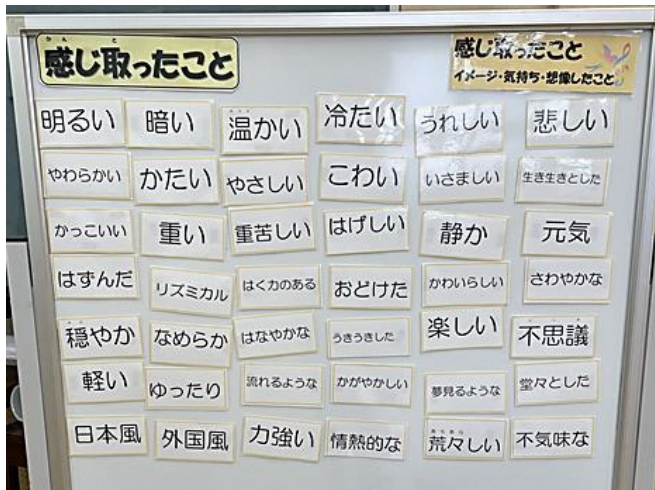 感じ取ったこと
感じ取ったこと
イメージ・気持ち・想像したこと
明るい 暗い 温かい 冷たい うれしい 悲しい
やわらかい かたい やさしい こわい いさましい 生き生きとした
かっこいい 重い 重苦しい はげしい 静か 元気
はずんだ リズミカル はく力のある おどけた かわいらしい さわやかな
穏やか なめらか はなやかな うきうきした 楽しい 不思議
軽い ゆったり 流れるような かがやかしい 夢見るような 堂々とした
日本風 外国風 力強い 情熱的な 荒々しい 不気味な